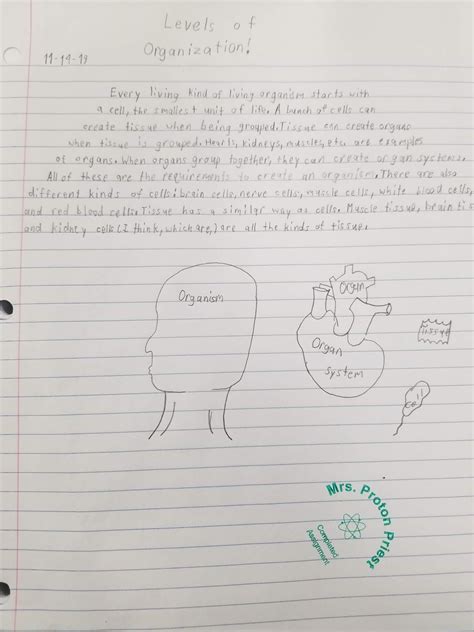 Levels of
Organization!
11-19-19
Every living kind of living organism starts with
a cell, the smallest unit of life. A bunch of cells can
create tissue when being grouped. Tissue can create organs
when tissue is grouped. Hearts, kidneys, muscles, etc. are examples
of organs. When organs group together, they can create organ systems.
All of these are the requirements to create an organism. There are also
different kinds of cells: brain cells, nerve cells, muscle cells, white blood cells,
and red blood cells. Tissue has a similar way as cells. Muscle tissue, brain tis
and kidney cells (I think, which are,) are all the kinds of tissue.
Organism
Organ
Organ
system
tissue
cell
Mrs. Proton Priest
Completed
Assignment